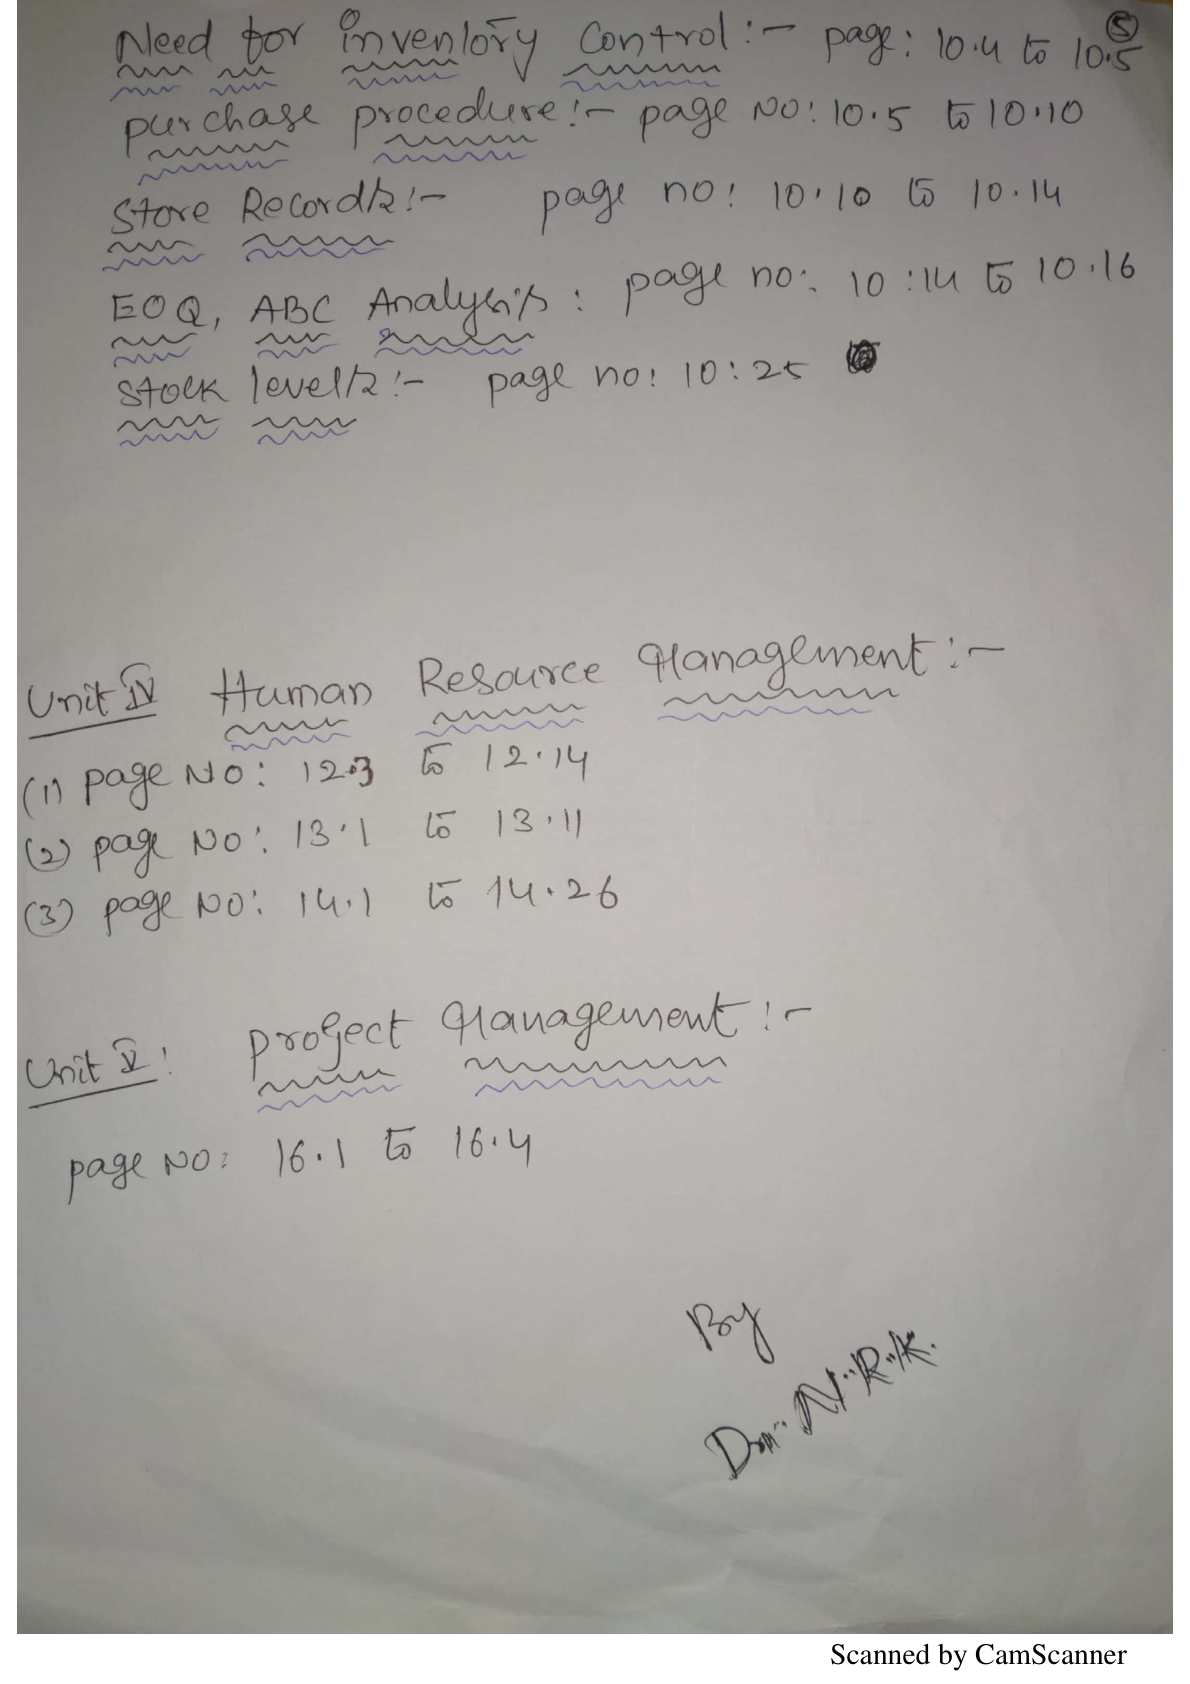 5
Need for inventory control :- page: 10.4 to 10.5
purchase procedure :- page No: 10.5 to 10.10
Store Records :- page no: 10.10 to 10.14
EOQ, ABC Analysis : page no: 10:14 to 10.16
Stock levels :- page no: 10:25
Unit IV Human Resource Management :-
(1) page No: 12.3 to 12.14
(2) page No: 13.1 to 13.11
(3) page No: 14.1 to 14.26
Unit V: Project Management :-
page No: 16.1 to 16.4
By
N.R.K.
Scanned by CamScanner